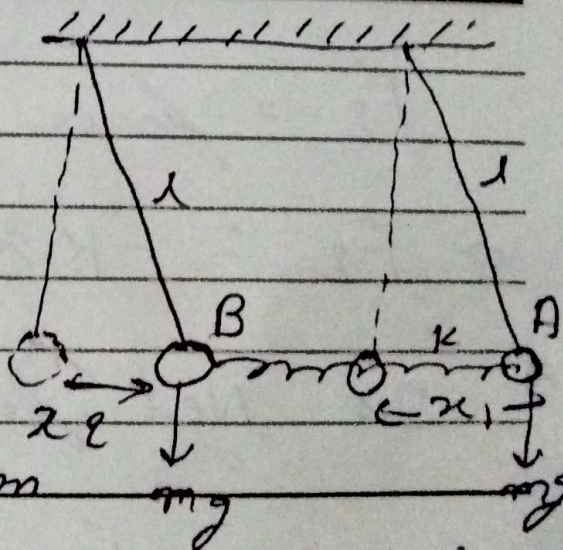 l
l
B
K
A
x2
←x1→
m
mg
mg